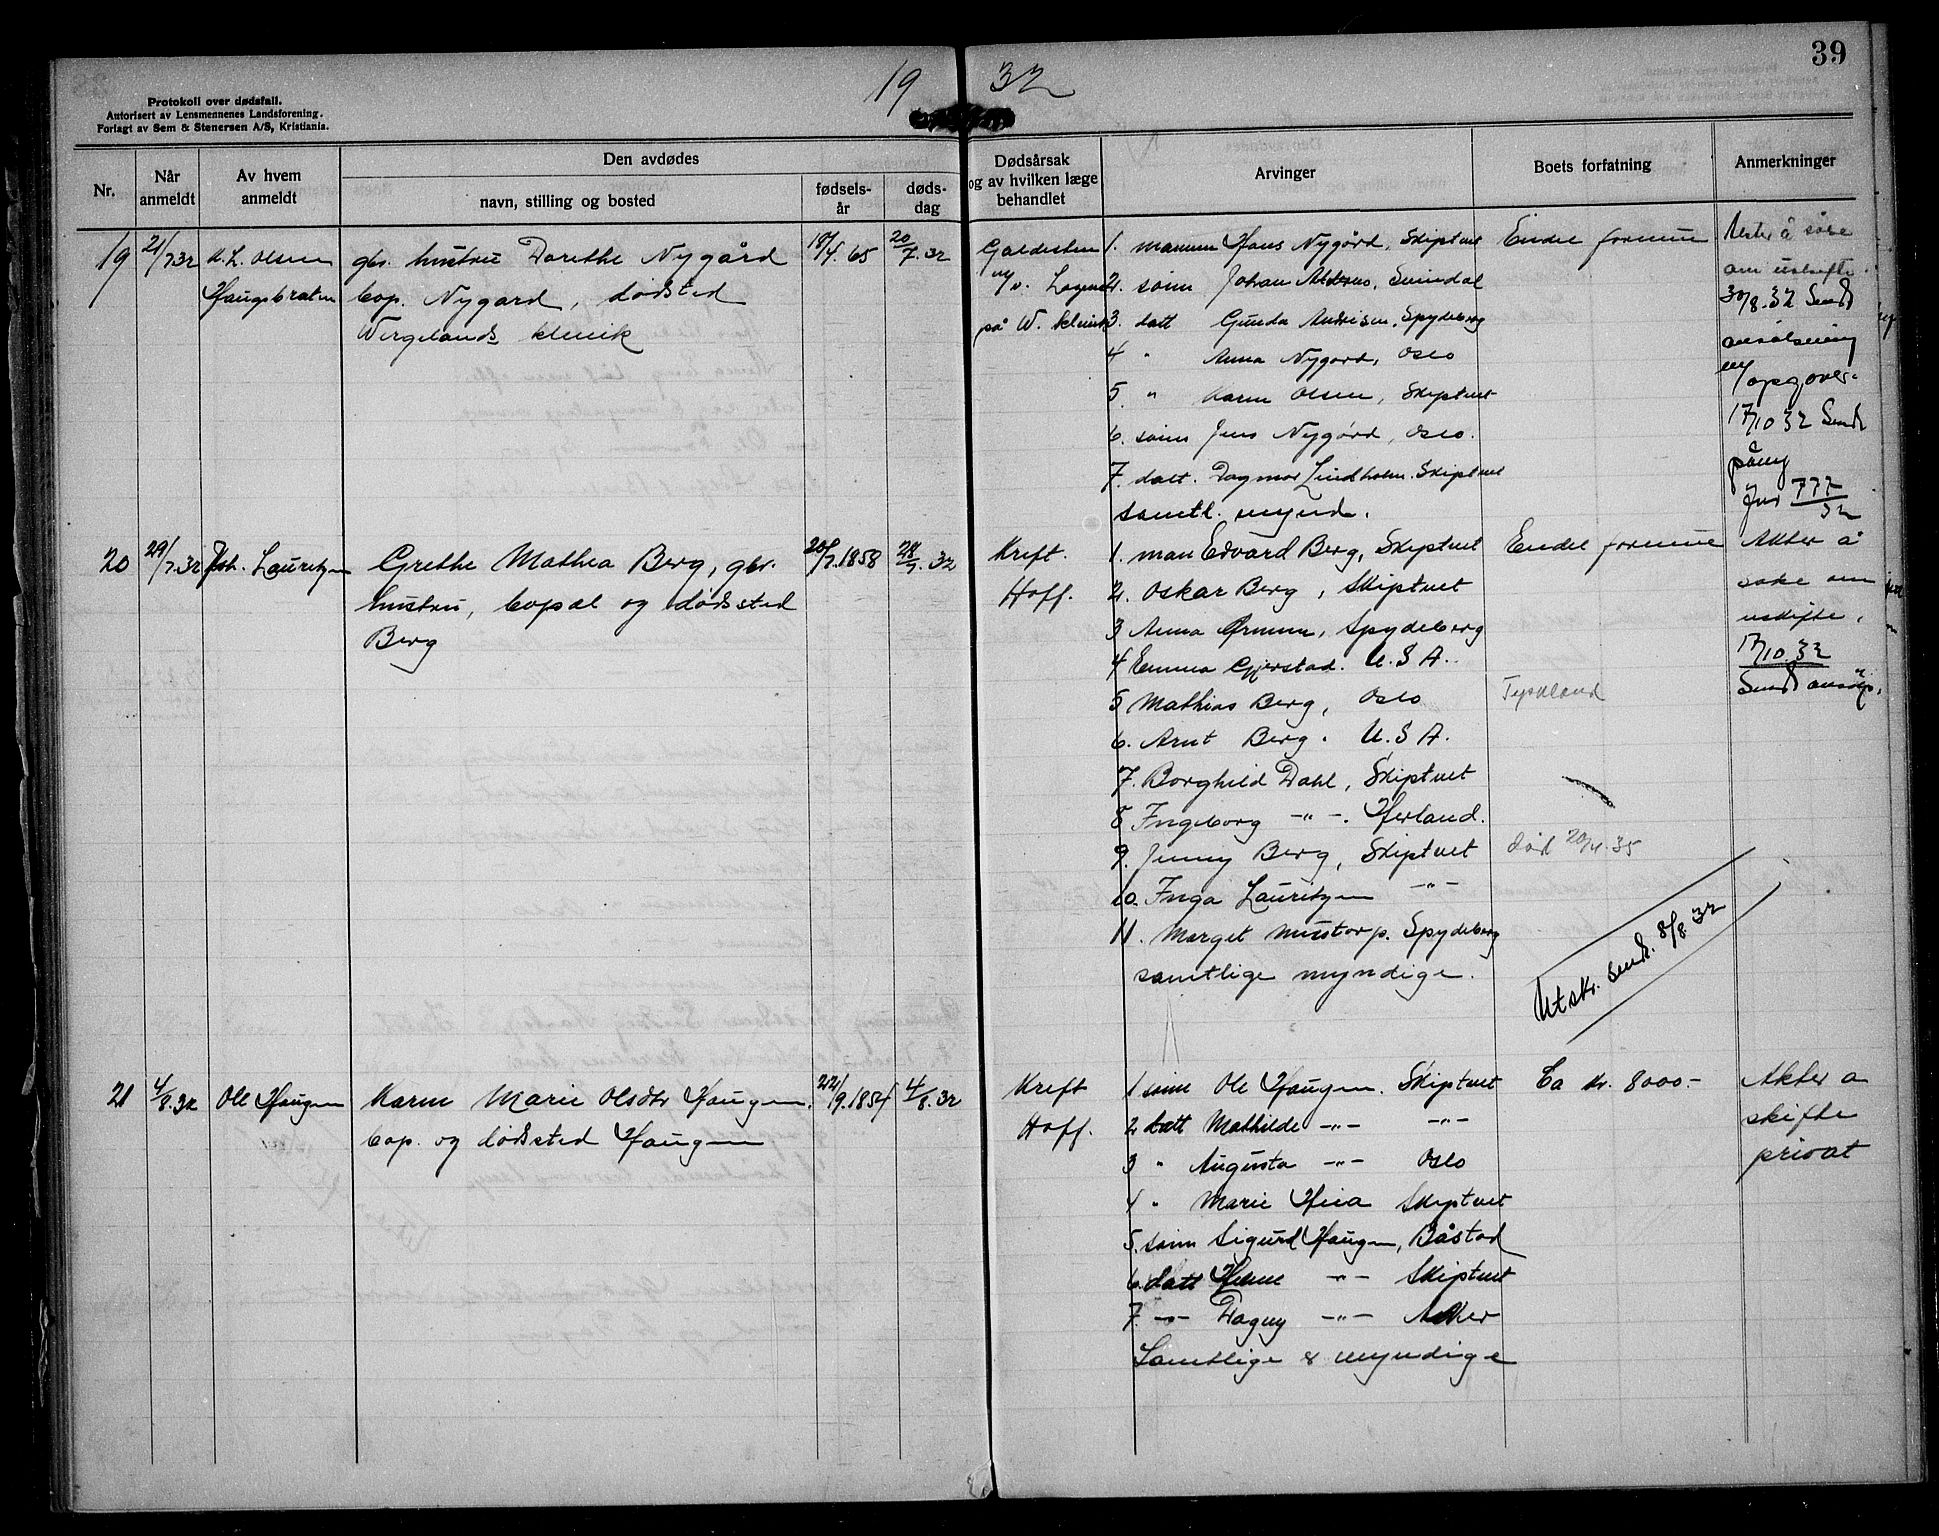 39
19 32
Protokoll over dødsfall.
Autorisert av Lensmennenes Landsforening.
Forlagt av Sem & Stenersen A/S, Kristiania.
Nr.
Når anmeldt
Av hvem anmeldt
Den avdødes
navn, stilling og bosted
fødsels-år
døds-dag
Dødsårsak og av hvilken læge behandlet
Arvinger
Boets forfatning
Anmerkninger
19
21/7 32
K. L. Olsen
Haugsbraten
gbr. hustru Dorethe Nygård
bop. Nygard, dødsted
Wergelands klinik
18/4. 65
20/7. 32
Galdesten
på W. klinik
1. mannen Hans Nygård, Skiptvet
2. sønn Johan
3. datt Gunda Andersen, Spydeberg
4 " Anna Nygård, Oslo
5. " Karen Olsen, Skiptvet
6. sønn Jens Nygård, Oslo.
7. datt. Dagmar Lindholm. Skiptvet
samtl. mynd.
Endel formue
Akter å søke
om uskifte.
30/8. 32 Sendt
ansøkning
m/opgover.
17/10 32 Sendt
påny
Jnr 777/32
20
29/7. 32
Joh. Lauritzen
Grethe Mathea Berg, gbr.
hustru, bopæl og dødssted
Berg
20/7. 1858
28/7. 32
Kreft.
Hoff.
1. man Edvard Berg, Skiptvet
2. Oskar Berg, Skiptvet
3 Anna Ørmen, Spydeberg
4 Emma Gjerstad. U.S.A.
5 Mathias Berg, Oslo
6. Arnt Berg. U.S.A.
7. Borghild Dahl, Skiptvet
8 Ingeborg -"-. Herland.
9. Jenny Berg, Skiptvet
10. Inga Lauritzen -"-
11. Marget Mustorp. Spydeberg
samtlige myndige.
Endel formue
Tyskland
død 20/4. 35
Utskr. sendt. 8/8 32
Akter å
søke om
uskifte.
17/10. 32
Sendt ansøkn.
21
4/8. 32
Ole Haugen
Karen Marie Olsdtr Haugen.
bop. og dødssted Haugen
22/9. 1854
4/8. 32
Kreft
Hoff.
1 sønn Ole Haugen. Skiptvet
2 datt Mathilde -"- -"-
3 " Augusta -"- Oslo
4 " Marie Heia Skiptvet
5. sønn Sigurd Haugen, Båstad
6. datt Helene -"- Skiptvet
7. -"- Dagny -"- Aker
Samtlige er myndige
Ca kr. 8000.-
Akter å
skifte
privat